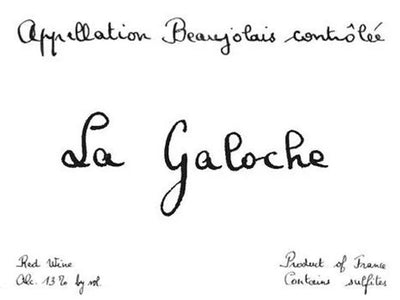 Appellation Beaujolais contrôlée
La Galoche
Red Wine
Alc. 13% by vol.
Product of France
Contains sulfites